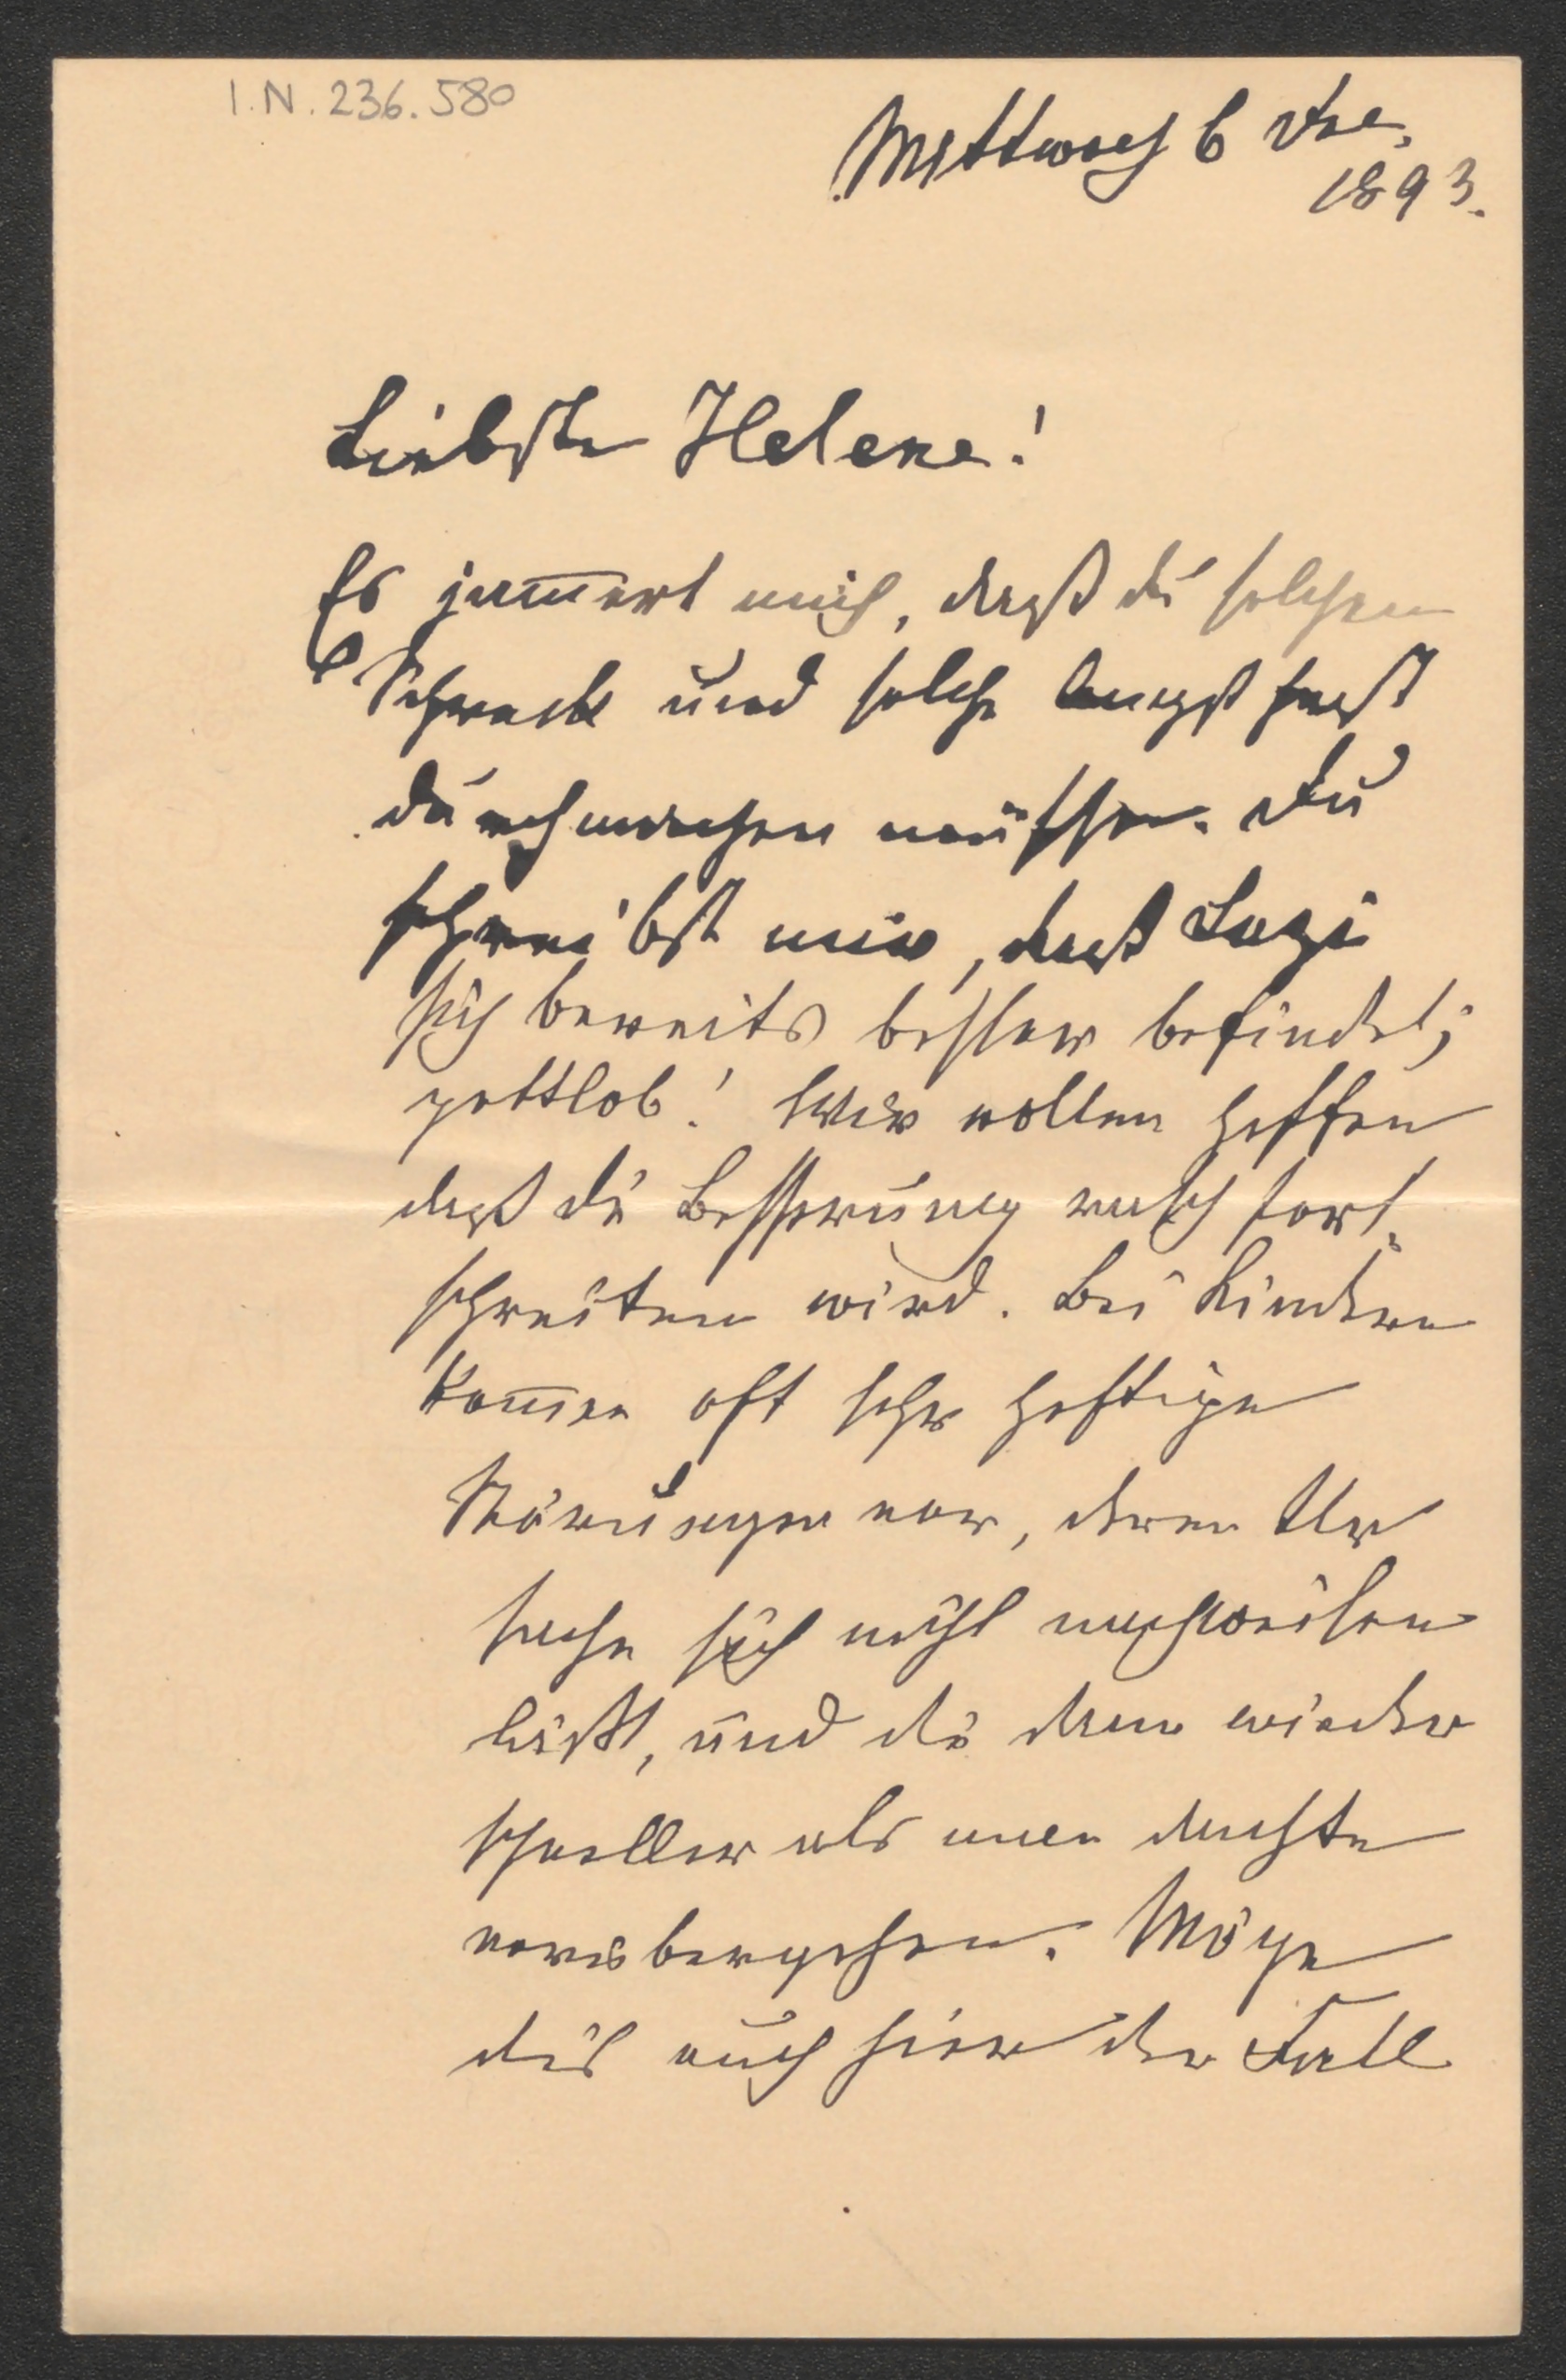 I.N. 236.580
Mittwoch 6 Dze.
1893.
Liebste Helene!
Es jam̅ert mich, daß du solchen
Schreck und solche Angst hast
durchmachen müssen. Du
schreibst mir, daß Lazi
sich bereits besser befindet;
gottlob! Wir wollen hoffen
daß die Besserung rasch fort-
schreiten wird. Bei Kindern
kom̅en oft sehr heftige
Störungen vor, deren Ur
sache sich nicht nachweisen
läßt, und die dann wieder
schneller als man dachte
vorübergehen. Möge
dies auch hier der Fall